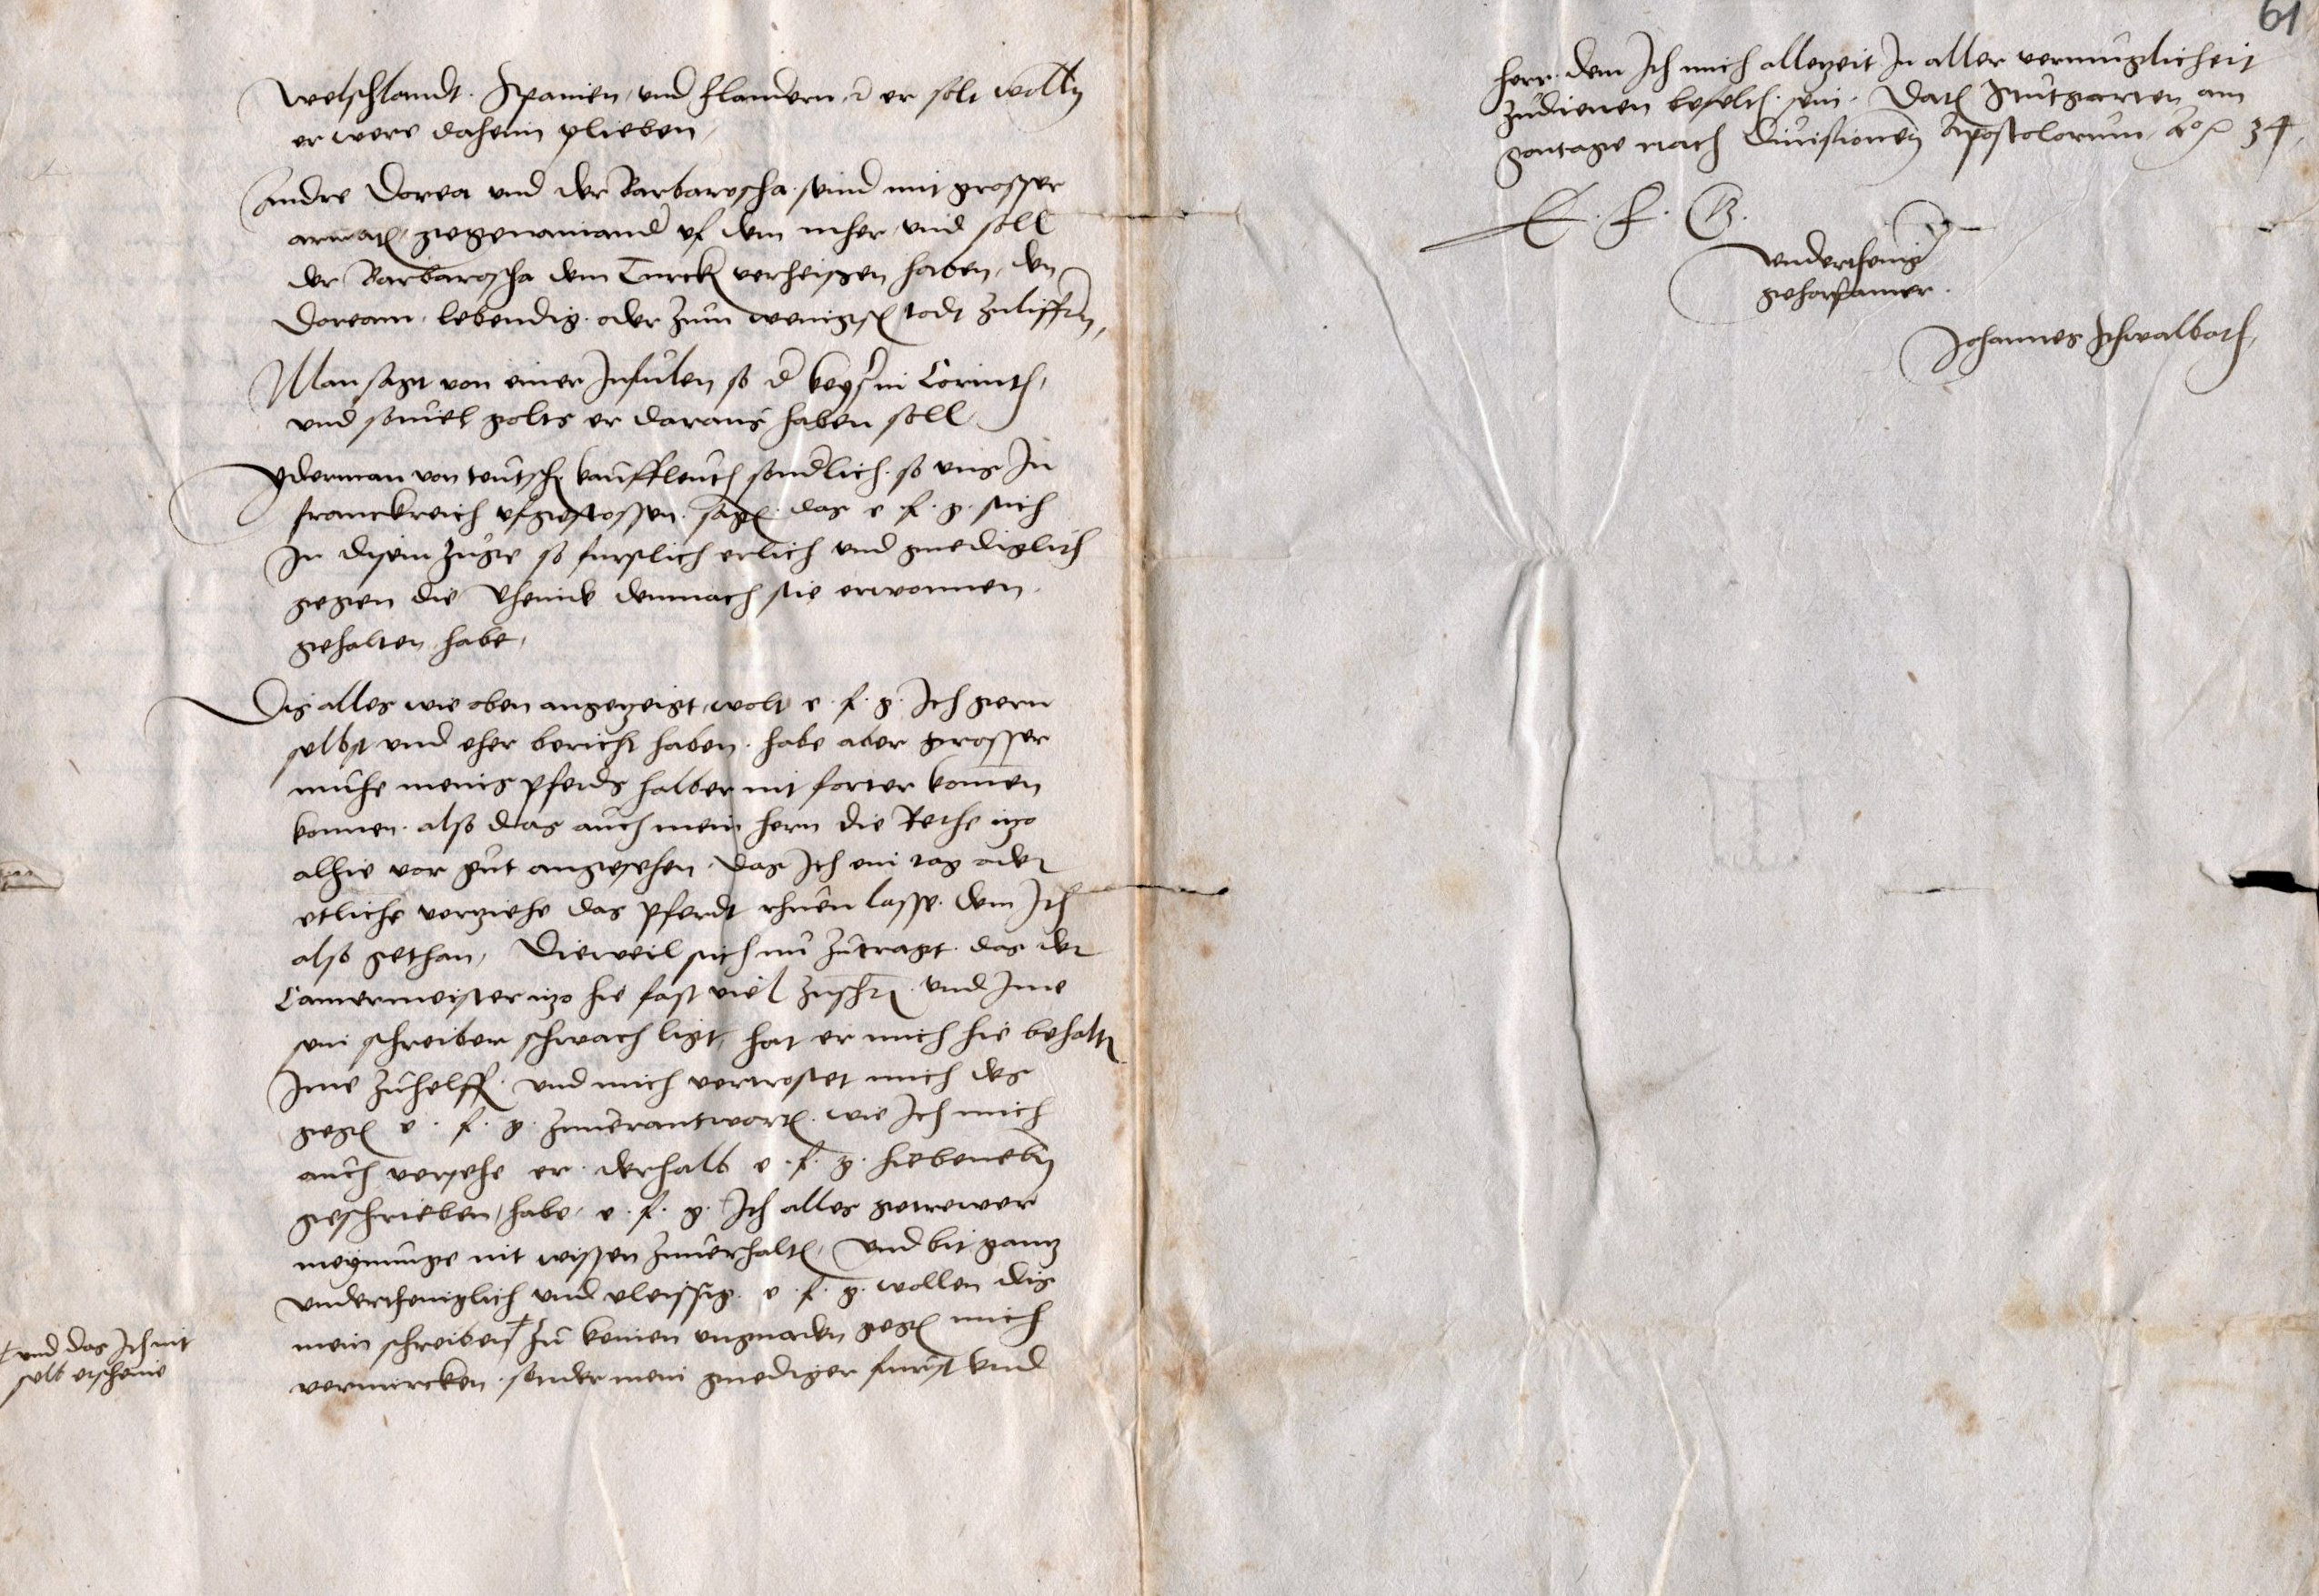 welschlandt. Spanien, und flandern, d er solt wolln
er were daheim plieben,
Andre Dorea und der Barbaroscha seind mit grosser
armat, gegenainand uf dem meher, und soll
der Barbaroscha dem Turck verheissen haben, den
Doream, lebendig, oder zum wenigst todt zuliffrn,
Man sagt von einer Insulen so d keys in Corinth,
und souiel golts er daraus haben soll,
Yderman von teutsch kauffleuth sondlich so uns In
franckreich ufgestossen. sagt das e f. g. sich
In disem zuge so furstlich erlich und gnediglich
gegen die Rheinde demnach sie erwonnen.
gehalten habe,
Dis alles wie oben angezeigt, wolt e. f. g. Ich gern
selbst und eher bericht haben. habe aber grosser
muhe meins pferds halber nit forter komen
konnen. also das auch mein hern die Rethe itzo
alhie vor gut angesehen, das Ich ein tag oder
etliche verziehe das pferdt rhuen lasse. dem Ich
also gethan, Dieweil sich nu zutragt. das der
Camermeister itzo hie fast viel zuschr und Ime
sein schreiber schwach ligt, hat er mich hie behalt
Ime zuhelff. und mich vertrostet mich des
gegen e. f. g. zuuerantwort. wie Ich mich
auch versehe er. derhalb e. f. g. hiebenebn
geschrieben, habe, e. f. g. Ich alles getrewer
meynunge nit wissen zuuerhalt, und bit gantz
undertheniglich und vleissig. e. f. g. wollen dis
mein schreiben † zu keinen ungnaden gegen mich
vermercken. sonder mein gnediger furst und
† und das Ich nit
selb erscheine
61
herr. dem Ich mich allezeit In aller vermuglicheit
zudienen befelch sein. Dat Stutgarten am
sontage nach Diuisionem Apostolorum, Ao 34,
E. F. G.
underthenig
gehorsamer.
Johannes Schwalbach,